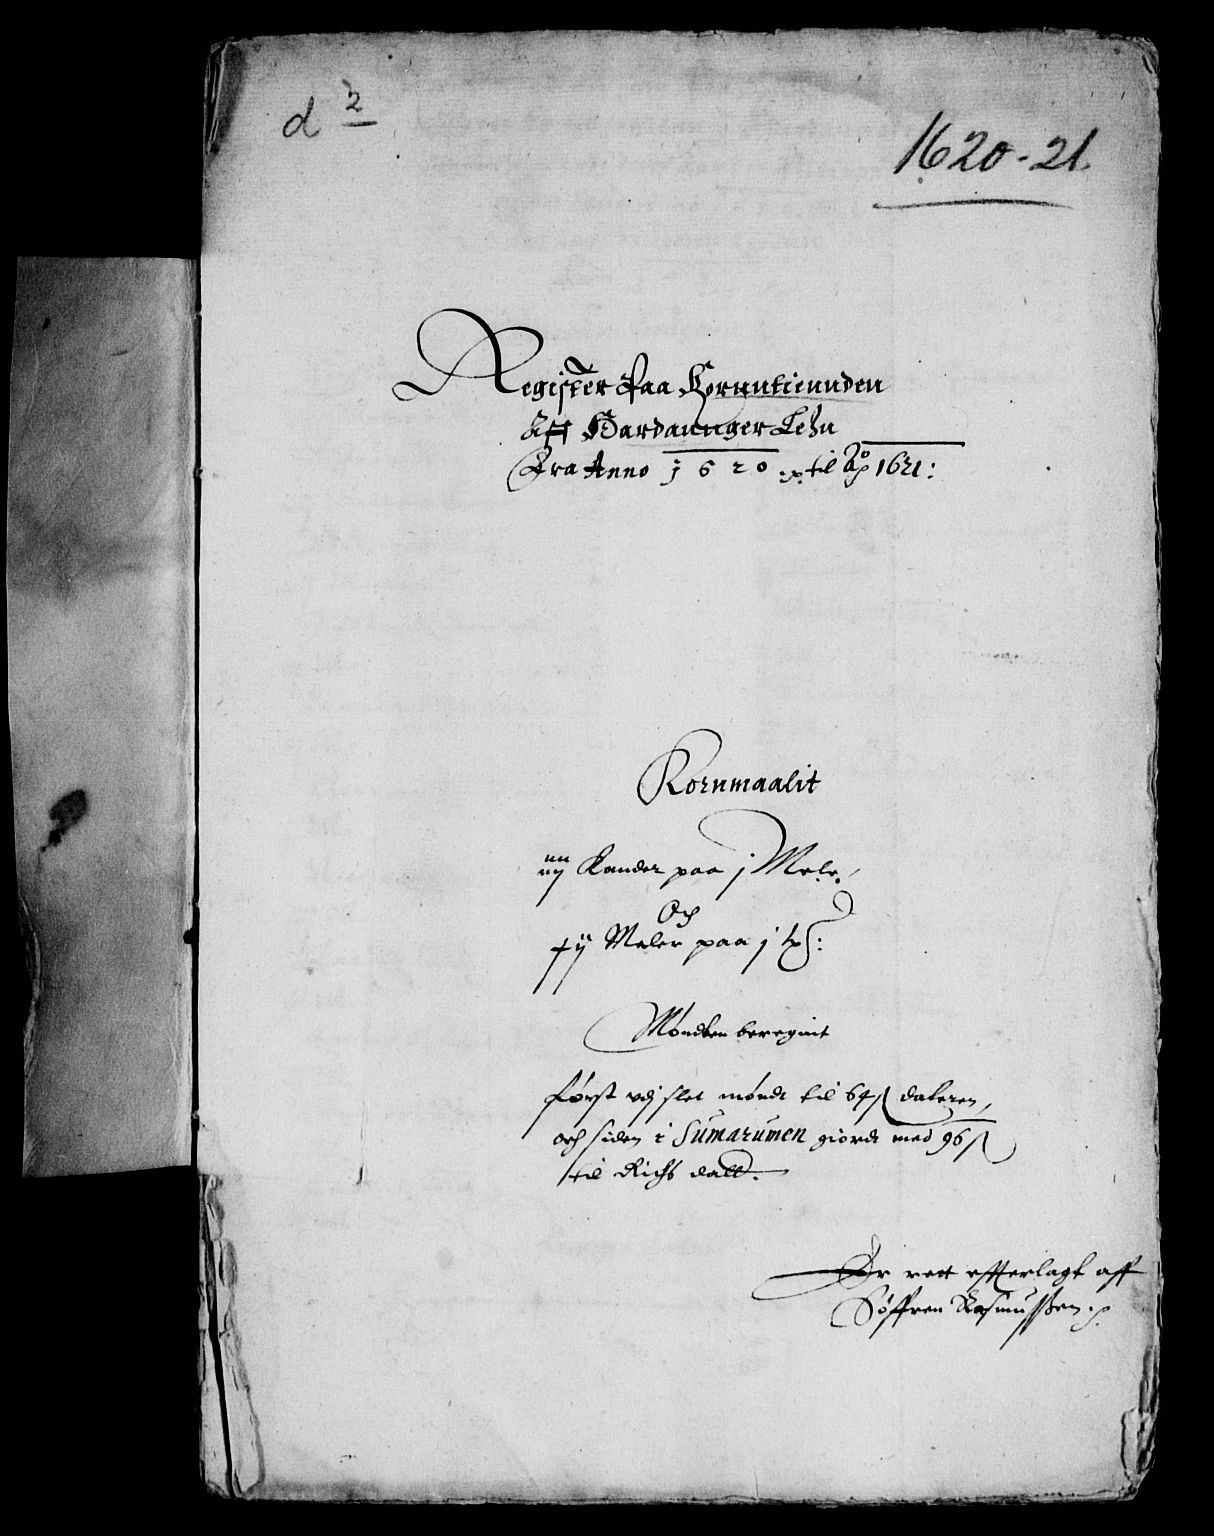 d 2
1620-21
Register Paa Kornntiennden
Aff Hardannger Lehn
Fra Anno j620 til Ao 1621:
Kornmaalit
Kander paa j Mele,
Och
Meler paa j
Møndten beregnit
først vdj slet møndt til 64 ß daleren,
och siden i Sumarumen giordt med 96 ß
til Richs dall.
Er rett effterlagt aff
Søffren Rasmussen